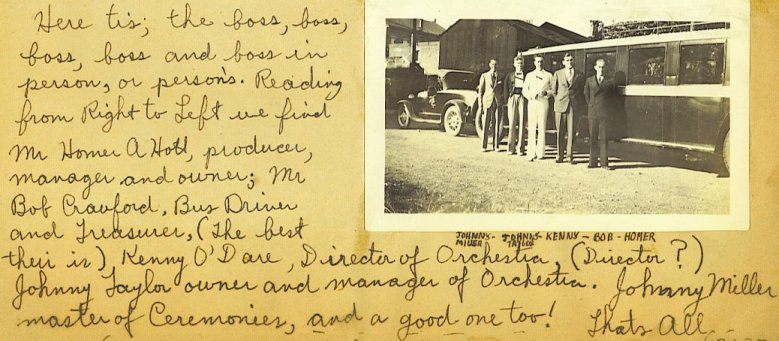 Here tis; the boss, boss,
boss, boss and boss in
person, or persons. Reading
from Right to Left we find
Mr Homer A Hott, producer,
manager and owner; Mr
Bob Crauford, Bus Driver
and Treasurer, (the best
their is) Kenny O'Dare, Director of Orchestra, (Director?)
Johnny Taylor owner and manager of Orchestra. Johnny Miller
master of Ceremonies, and a good one too! Thats All
JOHNNY - JOHNNY - KENNY - BOB - HOMER
MILLER TAYLOR